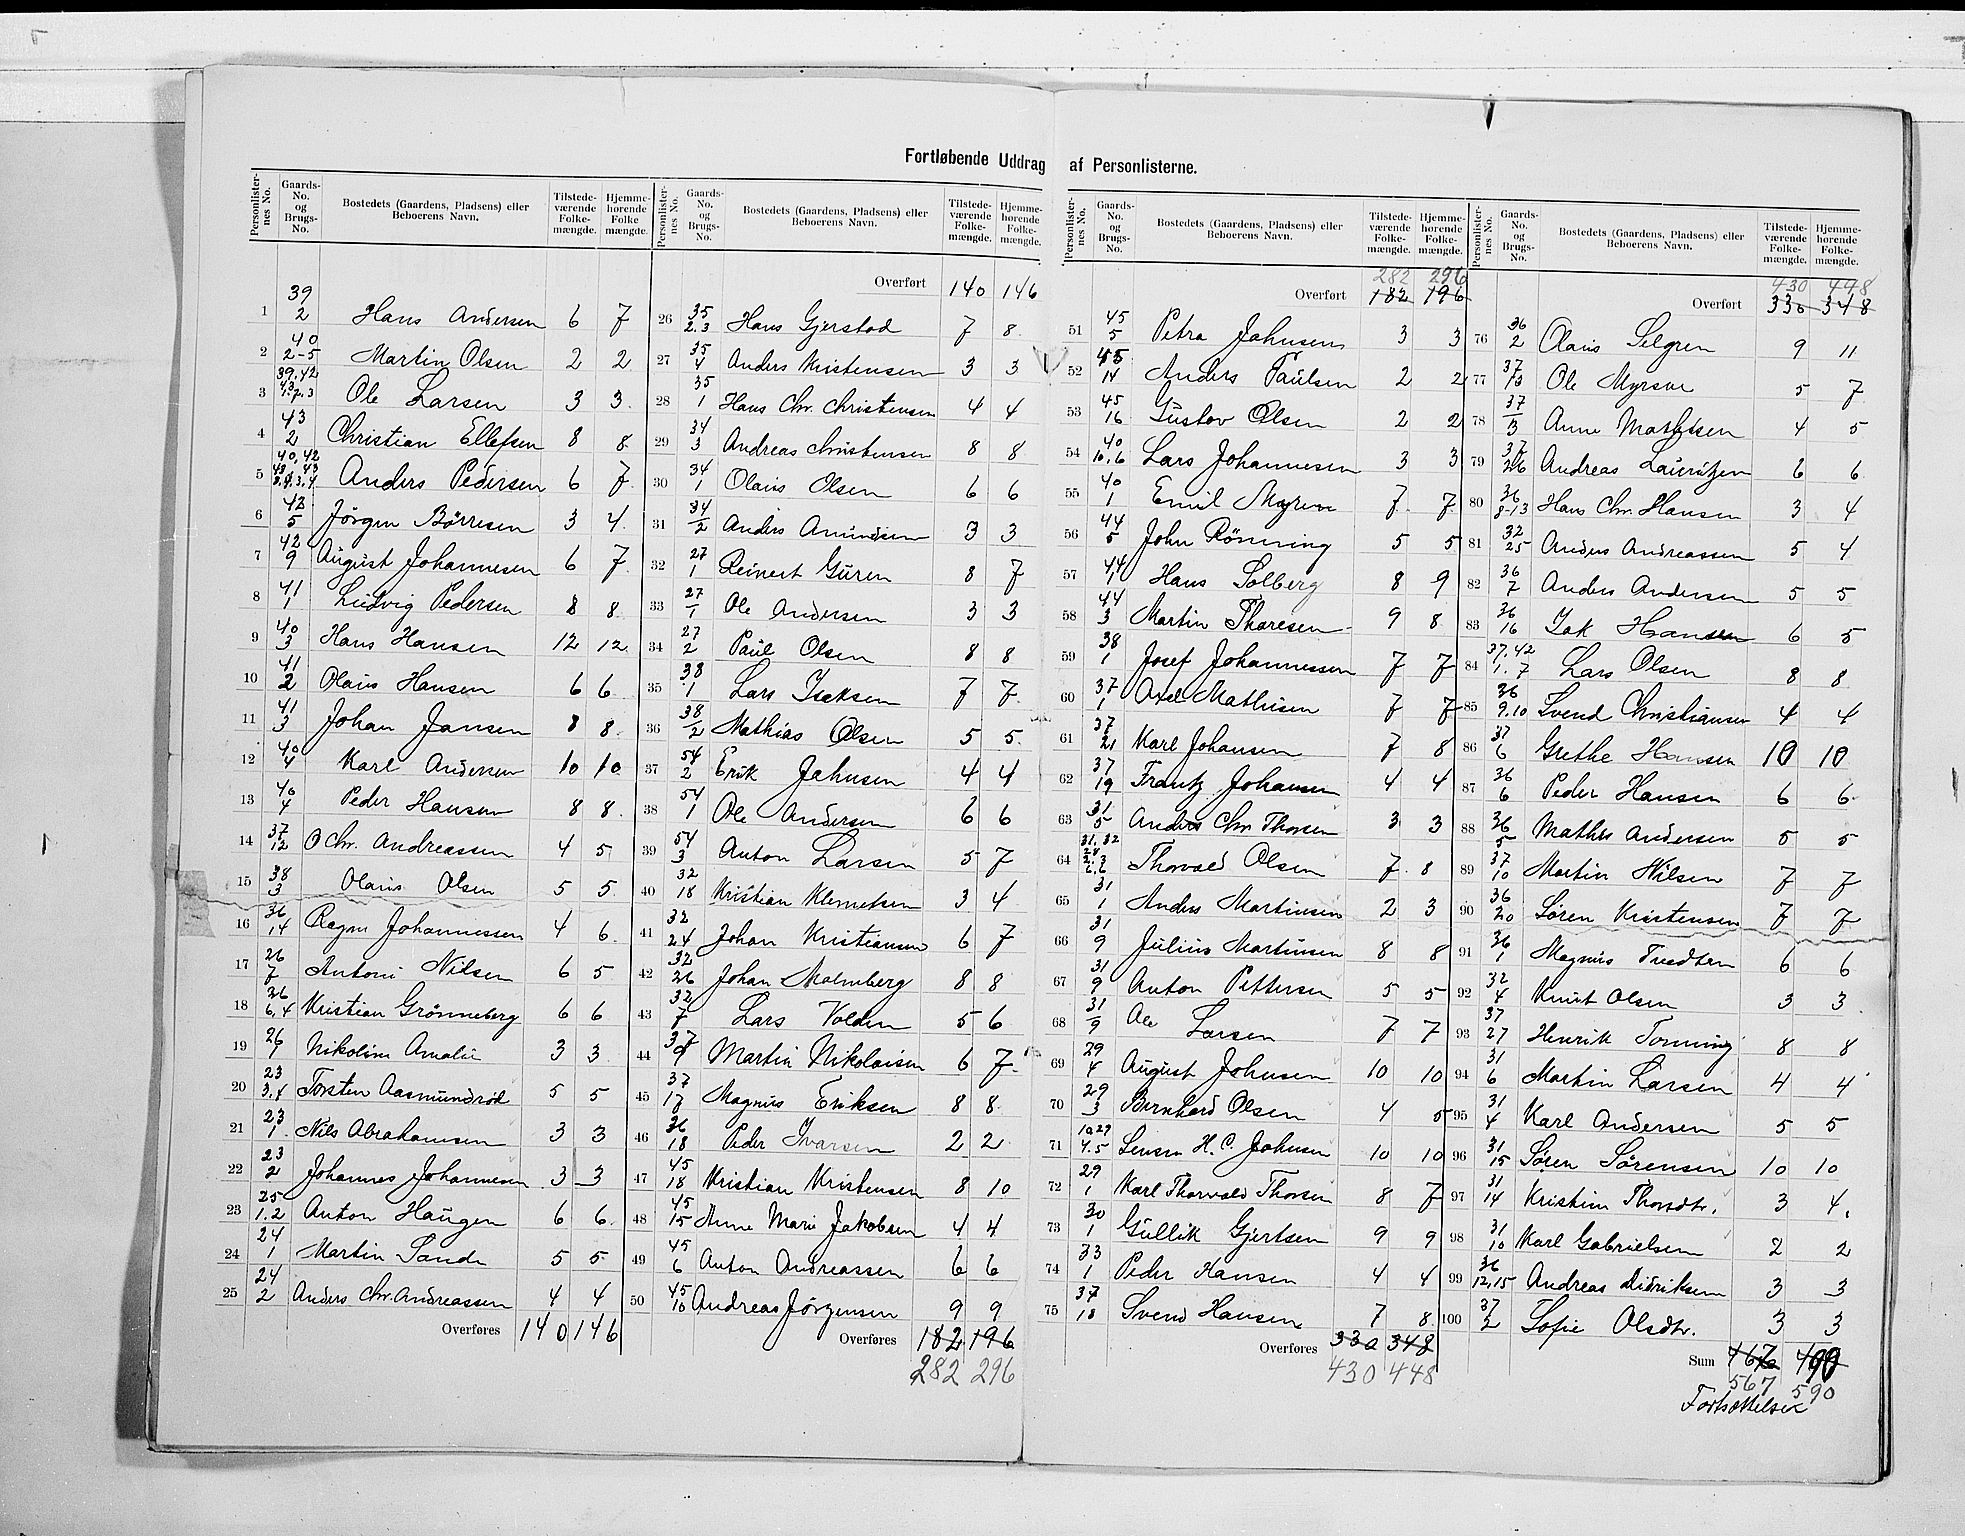 Fortløbende Uddrag af Personlisterne.
Personlisternes No. Gaards-No. og Brugs-No. Bostedets (Gaardens, Pladsens) eller Beboerens Navn. Tilstedeværende Folkemængde. Hjemmehørende Folkemængde.
1 39/2 Hans Andersen 6 7
2 40/2-5 Martin Olsen 2 2
3 Ole Larsen 3 3
4 43/2 Christian Ellefsen 8 8
5 Anders Pedersen 6 7
6 42/5 Jörgen Börresen 3 4
7 42/9 August Johannesen 6 7
8 41/1 Ludvig Pedersen 8 8
9 40/3 Hans Hansen 12 12
10 41/2 Olaus Hansen 6 6
11 41/3 Johan Jansen 8 8
12 40/4 Karl Andersen 10 10
13 40/4 Peder Hansen 8 8
14 37/12 O Chr. Andreassen 4 5
15 38/3 Olaus Olsen 5 5
16 36/14 Ragn Johannessen 4 6
17 26/7 Antoni Nilsen 6 5
18 26/6,4 Kristian Grönneberg 6 6
19 26/1 Nikoline Amalie 3 3
20 23/3,4 Torsten Aasmundröd 5 5
21 23/1 Nils Abrahamsen 3 3
22 23/2 Johannes Johannesen 3 3
23 25/1,2 Anton Haugen 6 6
24 24/1 Martin Sande 5 5
25 24/2 Anders Chr. Andreassen 4 4
Overføres 140 146
Overført 140 146
26 35/2.3 Hans Gjerstad 7 8
27 35/4 Anders Kristensen 3 3
28 35/1 Hans Chr. Christensen 4 4
29 34/3 Andreas Christensen 8 8
30 34/1 Olaus Olsen 6 6
31 34/2 Anders Amundsen 3 3
32 27/1 Reinert Guren 8 7
33 27/1 Ole Andersen 3 3
34 27/2 Paul Olsen 8 8
35 38/1 Lars Isaksen 7 7
36 38/2 Mathias Olsen 5 5
37 54/2 Erik Johnsen 4 4
38 54/1 Ole Andersen 6 6
39 54/3 Anton Larsen 5 7
40 32/18 Kristian Klemetsen 3 4
41 32/24 Johan Kristiansen 6 7
42 32/26 Johan Malmberg 8 8
43 32/7 Lars Volden 5 6
44 37/9 Martin Nikolaisen 6 7
45 37/17 Magnus Eriksen 8 8
46 36/18 Peder Ivarsen 2 2
47 45/18 Kristian Kristensen 8 10
48 45/15 Anne Marie Jakobsen 4 4
49 45/6 Anton Andreassen 6 6
50 45/10 Andreas Jörgensen 9 9
Overføres 182 196
282 296
282 296
Overført 182 196
51 45/5 Petra Johnsen 3 3
52 45/14 Anders Paulsen 2 2
53 45/16 Gustav Olsen 2 2
54 40/10,6 Lars Johannesen 3 3
55 40/1 Emil Myrene 7 7
56 44/5 John Rönning 5 5
57 44/1 Hans Solberg 8 9
58 44/3 Martin Thoresen 9 8
59 38/1 Josef Johannessen 7 7
60 37/1 Axel Mathisen 7 7
61 37/21 Karl Johansen 7 8
62 37/19 Frantz Johansen 4 4
63 31/5 Anders Chr. Thorsen 3 3
64 Thorvald Olsen 7 8
65 31/1 Anders Martinsen 2 3
66 31/9 Julius Martinsen 8 8
67 31/9 Anton Pettersen 5 5
68 31/9 Ole Larsen 7 7
69 29/4 August Johnsen 10 10
70 29/3 Bernhard Olsen 4 5
71 H. C. Johnsen 10 10
72 29/1 Karl Thorvald Thorsen 8 7
73 30/1 Gullik Gjertsen 9 9
74 33/1 Peder Hansen 4 4
75 37/18 Svend Hansen 7 8
Overføres 330 348
430 448
430 448
Overført 330 348
76 36/2 Olaus Selgren 9 11
77 37/13 Ole Myrene 5 7
78 37/3 Anne Mathisen 4 5
79 37/26 Andreas Lauritzen 6 6
80 36/8-13 Hans Chr. Hansen 3 4
81 32/25 Anders Andreassen 5 4
82 36/7 Anders Andersen 5 5
83 36/16 Isak Hansen 6 5
84 37,42/1.7 Lars Olsen 8 8
85 36/9.10 Svend Christiansen 4 4
86 37/6 Grethe Hansen 10 10
87 36/6 Peder Hansen 6 6
88 36/5 Mathis Andersen 5 5
89 37/10 Martin Nilsen 7 7
90 36/20 Sören Kristensen 7 7
91 36/1 Magnus Tvedten 6 6
92 32/4 Knut Olsen 3 3
93 37/27 Henrik Torning 8 8
94 31/6 Martin Larsen 4 4
95 31/4 Karl Andersen 5 5
96 31/15 Sören Sörensen 10 10
97 31/14 Kristine Thorsdtr. 3 4
98 31/10 Karl Gabrielsen 2 2
99 36/12,15 Andreas Didriksen 3 3
100 37/2 Sofie Olsdtr. 3 3
Sum 467 490
567 590
Fortsættelser